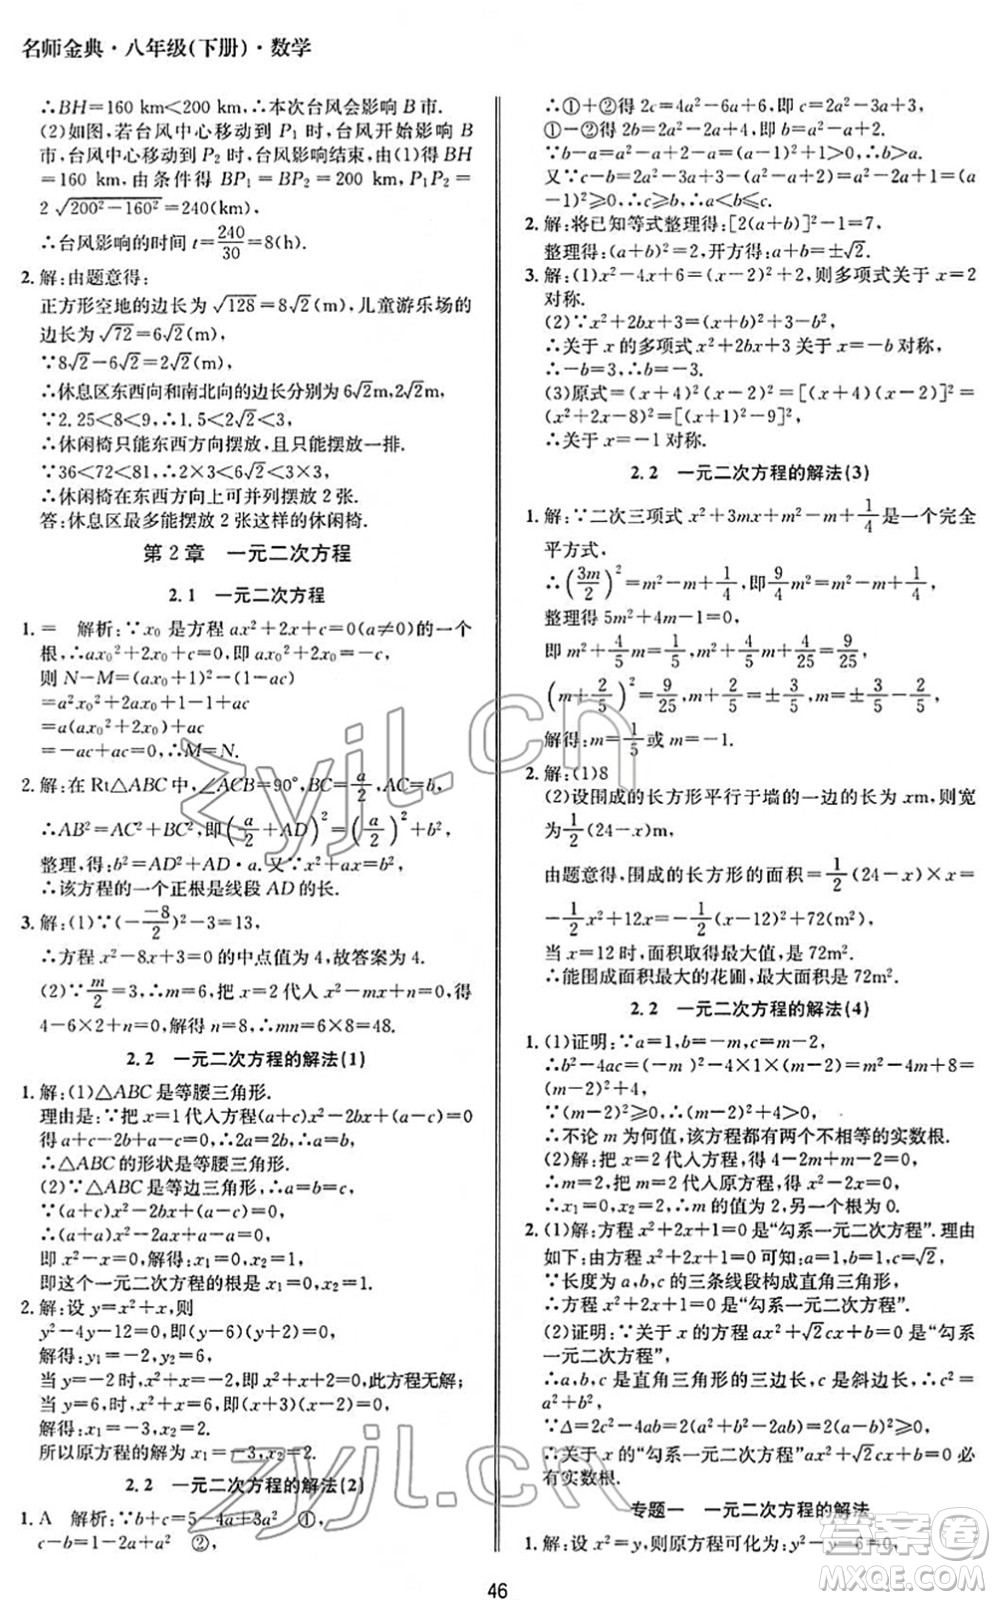 名师金典·八年级(下册)·数学
∴BH=160 km<200 km,∴本次台风会影响 B 市.
(2)如图,若台风中心移动到 P₁ 时,台风开始影响 B
市,台风中心移动到 P₂ 时,台风影响结束,由(1)得 BH
=160 km,由条件得 BP₁=BP₂=200 km,∴P₁P₂=
2√(200²-160²)=240(km),
∴台风影响的时间 t=240/30=8(h).
2. 解:由题意得:
正方形空地的边长为√128=8√2(m),儿童游乐场的
边长为√72=6√2(m),
∵8√2-6√2=2√2(m),
∴休息区东西向和南北向的边长分别为 6√2m,2√2m,
∵2.25<8<9,∴1.5<2√2<3,
∴休闲椅只能东西方向摆放,且只能摆放一排.
∵36<72<81,∴2×3<6√2<3×3,
∴休闲椅在东西方向上可并列摆放 2 张.
答:休息区最多能摆放 2 张这样的休闲椅.
第 2 章 一元二次方程
2.1 一元二次方程
1. = 解析:∵x₀ 是方程 ax²+2x+c=0(a≠0)的一个
根,∴ax₀²+2x₀+c=0,即 ax₀²+2x₀=-c,
则 N-M=(ax₀+1)²-(1-ac)
=a²x₀²+2ax₀+1-1+ac
=a(ax₀²+2x₀)+ac
=-ac+ac=0,∴M=N.
2. 解:在 Rt△ABC 中,∠ACB=90°,BC=a/2,AC=b,
∴AB²=AC²+BC²,即(a/2+AD)²=(a/2)²+b²,
整理,得:b²=AD²+AD·a.又∵x²+ax=b²,
∴该方程的一个正根是线段 AD 的长.
3. 解:(1)∵(-(-8)/2)²-3=13,
∴方程 x²-8x+3=0 的中点值为 4,故答案为 4.
(2)∵m/2=3,∴m=6,把 x=2 代入 x²-mx+n=0,得
4-6×2+n=0,解得 n=8,∴mn=6×8=48.
2.2 一元二次方程的解法(1)
1. 解:(1)△ABC 是等腰三角形.
理由是:∵把 x=1 代入方程(a+c)x²-2bx+a-c=0
得 a+c-2b+a-c=0,∴2a=2b,∴a=b,
∴△ABC 的形状是等腰三角形.
(2)∵△ABC 是等边三角形,∴a=b=c,
∵(a+c)x²-2bx+a-c=0,
∴(a+a)x²-2ax+a-a=0,
即 x²-x=0,解得:x₁=0,x₂=1,
即这个一元二次方程的根是 x₁=0,x₂=1.
2. 解:设 y=x²+x,则
y²-4y-12=0,即(y-6)(y+2)=0,
解得:y₁=-2,y₂=6,
当 y=-2时,x²+x=-2,即 x²+x+2=0,此方程无解;
当 y=6 时,x²+x=6,即(x+3)(x-2)=0,
解得:x₁=-3,x₂=2.
所以原方程的解为 x₁=-3,x₂=2.
2.2 一元二次方程的解法(2)
1. A 解析:∵b+c=5-4a+3a² ①,
c-b=1-2a+a² ②,
∴①+②得 2c=4a²-6a+6,即 c=2a²-3a+3,
①-②得 2b=2a²-2a+4,即 b=a²-a+2.
∵b-a=a²-a+2-a=(a-1)²+1>0,∴b>a.
又∵c-b=2a²-3a+3-(a²-a+2)=a²-2a+1=(a
-1)²⩾0,∴c⩾b,∴a<b⩽c.
2. 解:将已知等式整理得:[2(a+b)]²-1=7,
整理得:(a+b)²=2,开方得:a+b=±√2.
3. 解:(1)x²-4x+6=(x-2)²+2,则多项式关于 x=2
对称.
(2)∵x²+2bx+3=(x+b)²+3-b²,
∴关于 x 的多项式 x²+2bx+3 关于 x=-b 对称,
∴-b=3,∴b=-3.
(3)原式=(x+4)²(x-2)²=[(x+4)(x-2)]²=
(x²+2x-8)²=[(x+1)²-9]²,
∴关于 x=-1 对称.
2.2 一元二次方程的解法(3)
1. 解:∵二次三项式 x²+3mx+m²-m+1/4是一个完全
平方式,
∴(3m/2)²=m²-m+1/4,即9/4m²=m²-m+1/4,
整理得 5m²+4m-1=0,
即 m²+4/5m=1/5,m²+4/5m+4/25=1/5+4/25=9/25,
(m+2/5)²=9/25,m+2/5=±√(9/25)=±3/5,
解得:m=1/5或 m=-1.
2. 解:(1)8
(2)设围成的长方形平行于墙的一边的长为 xm,则宽
为1/2(24-x)m,
由题意得,围成的长方形的面积=1/2(24-x)×x=
-1/2x²+12x=-1/2(x-12)²+72(m²),
当 x=12 时,面积取得最大值,是 72m².
∴能围成面积最大的花圃,最大面积是 72m².
2.2 一元二次方程的解法(4)
1. (1)证明:∵a=1,b=-m,c=m-2,
∴b²-4ac=(-m)²-4×1×(m-2)=m²-4m+8=
(m-2)²+4.
∵(m-2)²⩾0,∴(m-2)²+4>0,
∴不论 m 为何值,该方程都有两个不相等的实数根.
(2)解:把 x=2 代入原方程,得 4-2m+m-2=0,解
得:m=2,把 m=2 代入原方程,得 x²-2x=0,
∴x₁=0,x₂=2,∴m 的值为 2,另一个根为 0.
2. (1)解:方程 x²+2x+1=0 是“勾系一元二次方程”.理由
如下:由方程 x²+2x+1=0 可知:a=1,b=1,c=√2,
∵长度为 a,b,c 的三条线段构成直角三角形,
∴方程 x²+2x+1=0 是“勾系一元二次方程”.
(2)证明:∵关于 x 的方程 ax²+√2cx+b=0 是“勾系
一元二次方程”,
∴a,b,c 是直角三角形的三边长,且 c 是斜边长,∴c²=
a²+b²,
∵Δ=2c²-4ab=2(a²+b²-2ab)=2(a-b)²⩾0,
∴关于 x 的“勾系一元二次方程”ax²+√2cx+b=0 必
有实数根.
专题一 一元二次方程的解法
1. 解:设 x²=y,则原方程可化为:y²-y-6=0,
46
zyjl.cn
zyjl.cn
答案卷
MXQE.COM